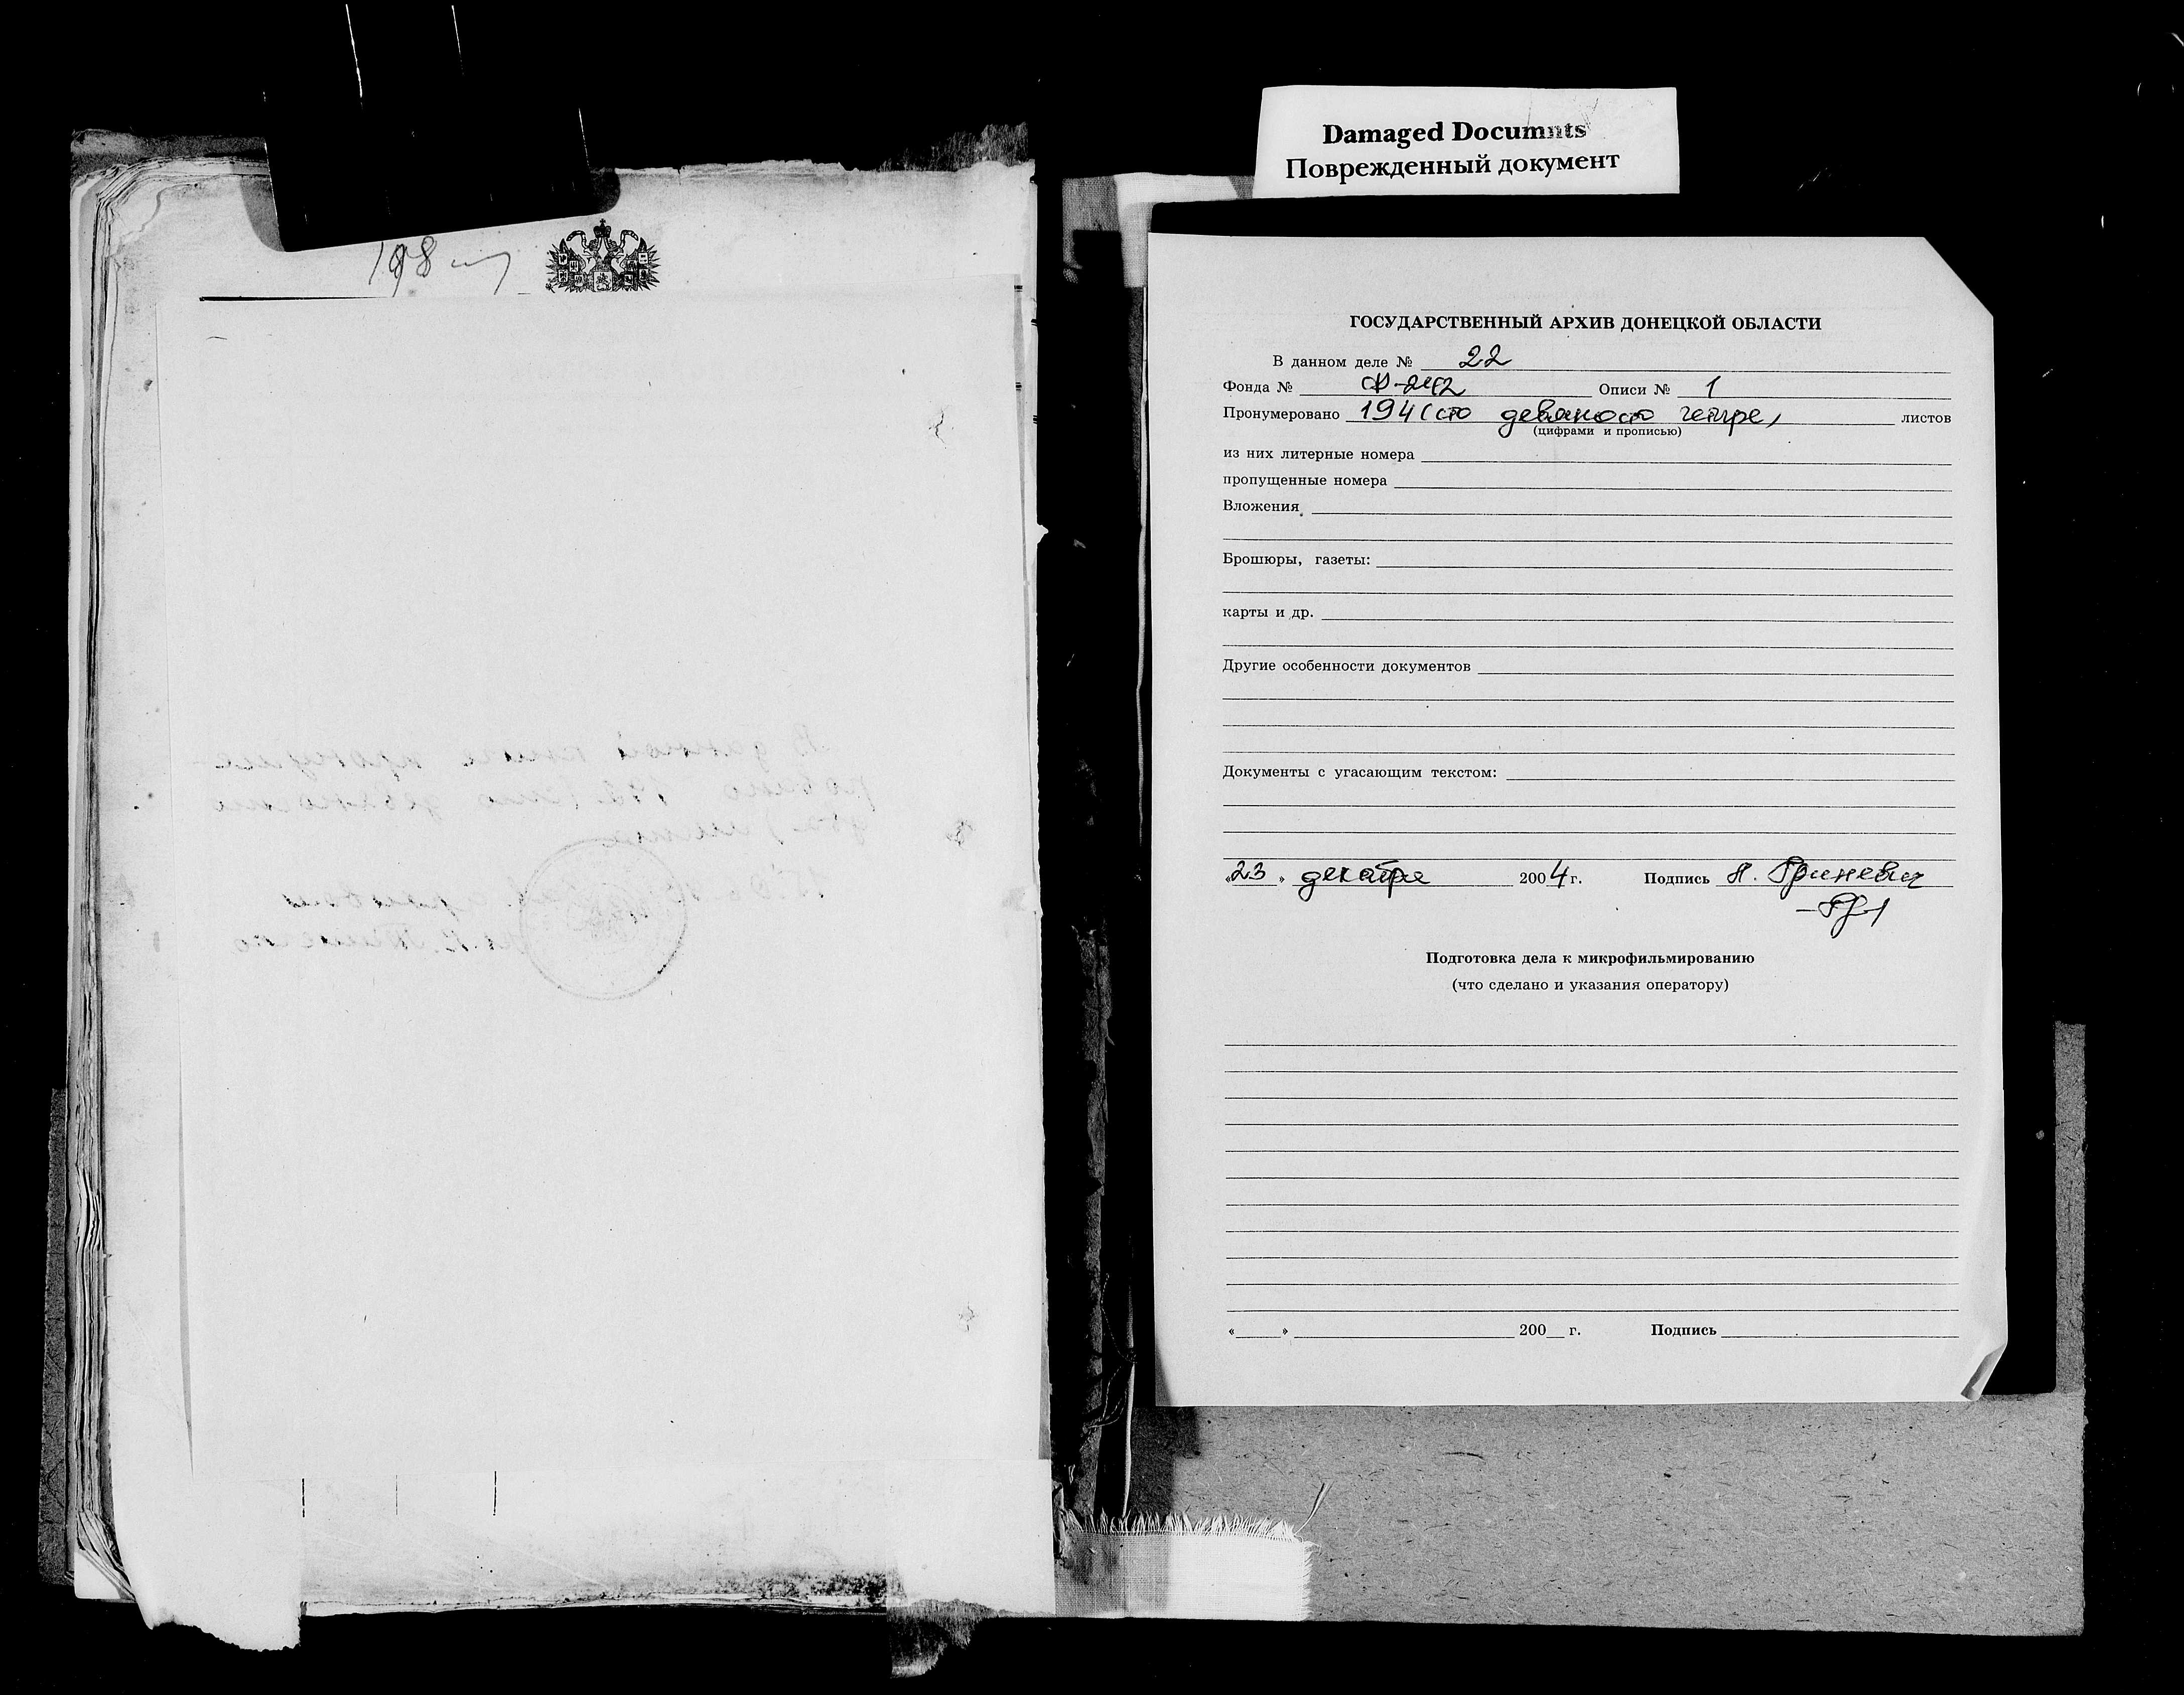 Damaged Documnts
Поврежденный документ
198
ГОСУДАРСТВЕННЫЙ АРХИВ ДОНЕЦКОЙ ОБЛАСТИ
В данном деле № 22
Фонда № Ф-242 Описи № 1
Пронумеровано 194 (сто девяносто четыре) листов
(цифрами и прописью)
из них литерные номера
пропущенные номера
Вложения
Брошюры, газеты:
карты и др.
Другие особенности документов
Документы с угасающим текстом:
«23» декабря 2004 г. Подпись Гриневич
Подготовка дела к микрофильмированию
(что сделано и указания оператору)
« » 200 г. Подпись